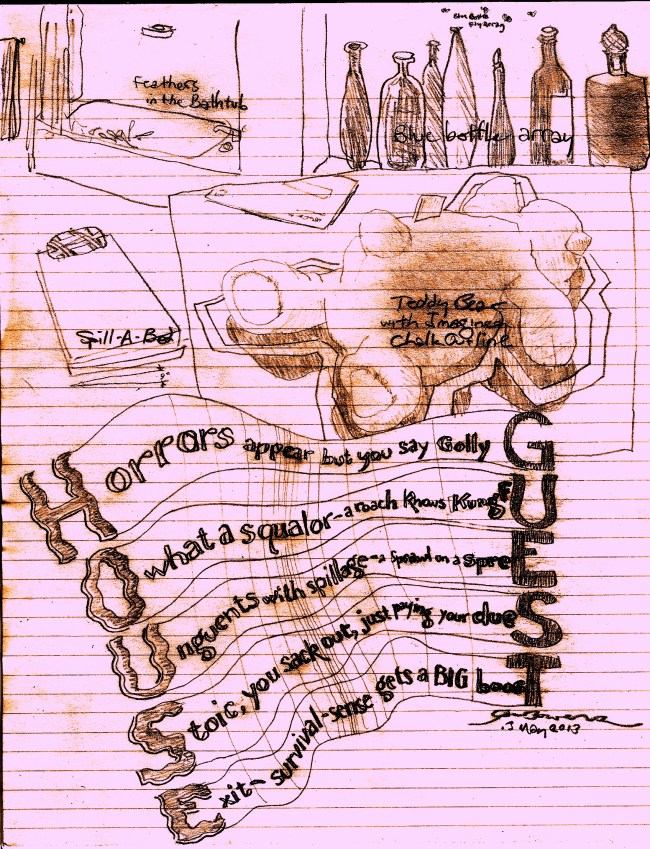 Blue Bottle
Fly array
Feathers
in the Bathtub
Blue bottle array
Spill-A-Bed
Teddy Bear
with Imagined
Chalk Outline
Horrors appear but you say Golly G
O what a squalor-a roach knows Kung fU
Unguents with spillage-a on a SpreE
Stoic, you sack out, just paying your dueS
Exit-survival-sense gets a BIG boosT
3 May 2013